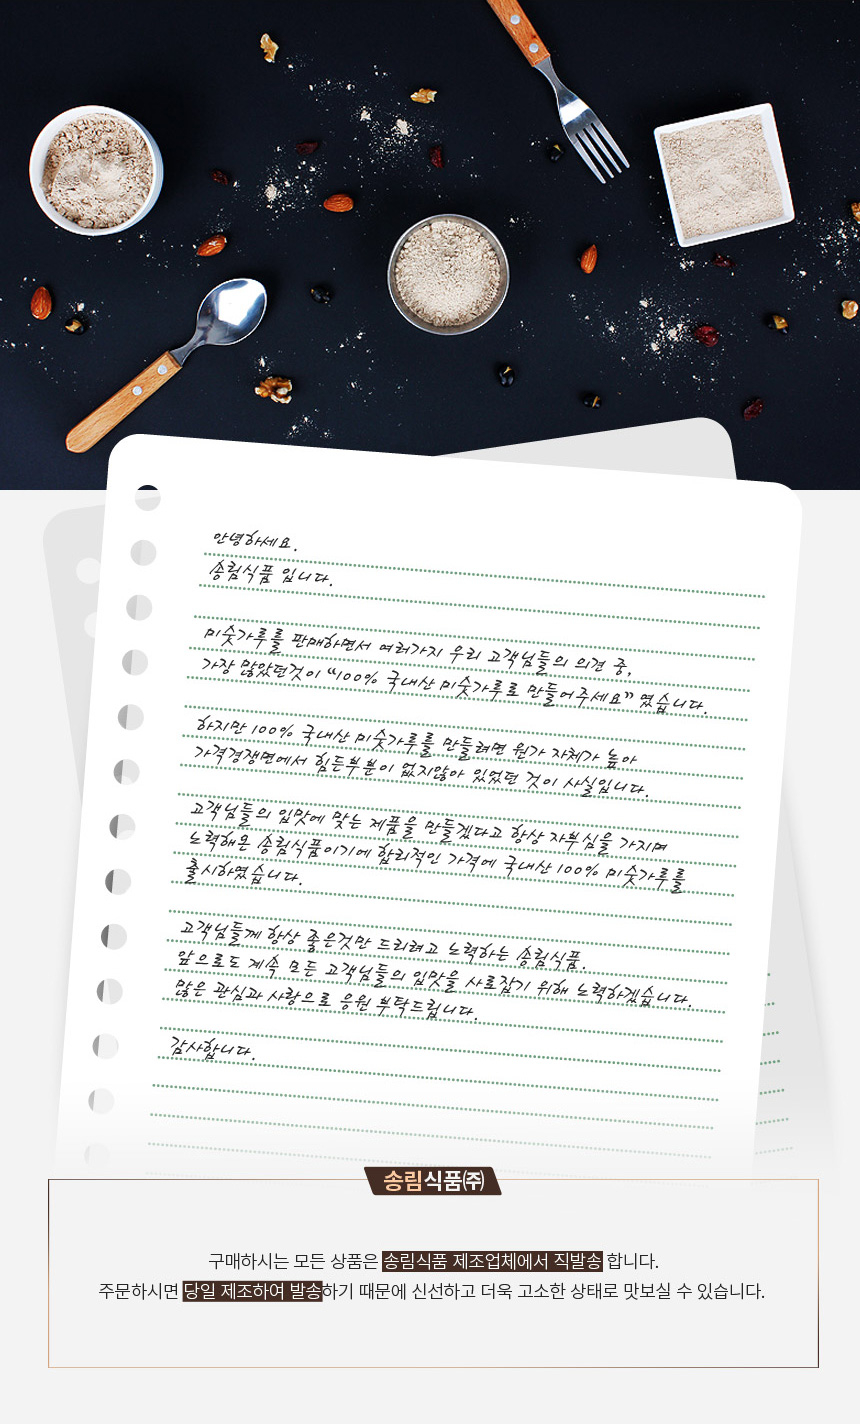 안녕하세요.
송림식품 입니다.
미숫가루를 판매하면서 여러가지 우리 고객님들의 의견 중,
가장 많았던것이 “100% 국내산 미숫가루로 만들어주세요” 였습니다.
하지만 100% 국내산 미숫가루를 만들려면 원가 자체가 높아
가격경쟁면에서 힘든부분이 없지않아 있었던 것이 사실입니다.
고객님들의 입맛에 맞는 제품을 만들겠다고 항상 자부심을 가지며
노력해온 송림식품이기에 합리적인 가격에 국내산 100% 미숫가루를
출시하였습니다.
고객님들께 항상 좋은것만 드리려고 노력하는 송림식품.
앞으로도 계속 모든 고객님들의 입맛을 사로잡기 위해 노력하겠습니다.
많은 관심과 사랑으로 응원 부탁드립니다.
감사합니다.
송림식품㈜
구매하시는 모든 상품은 송림식품 제조업체에서 직발송 합니다.
주문하시면 당일 제조하여 발송하기 때문에 신선하고 더욱 고소한 상태로 맛보실 수 있습니다.